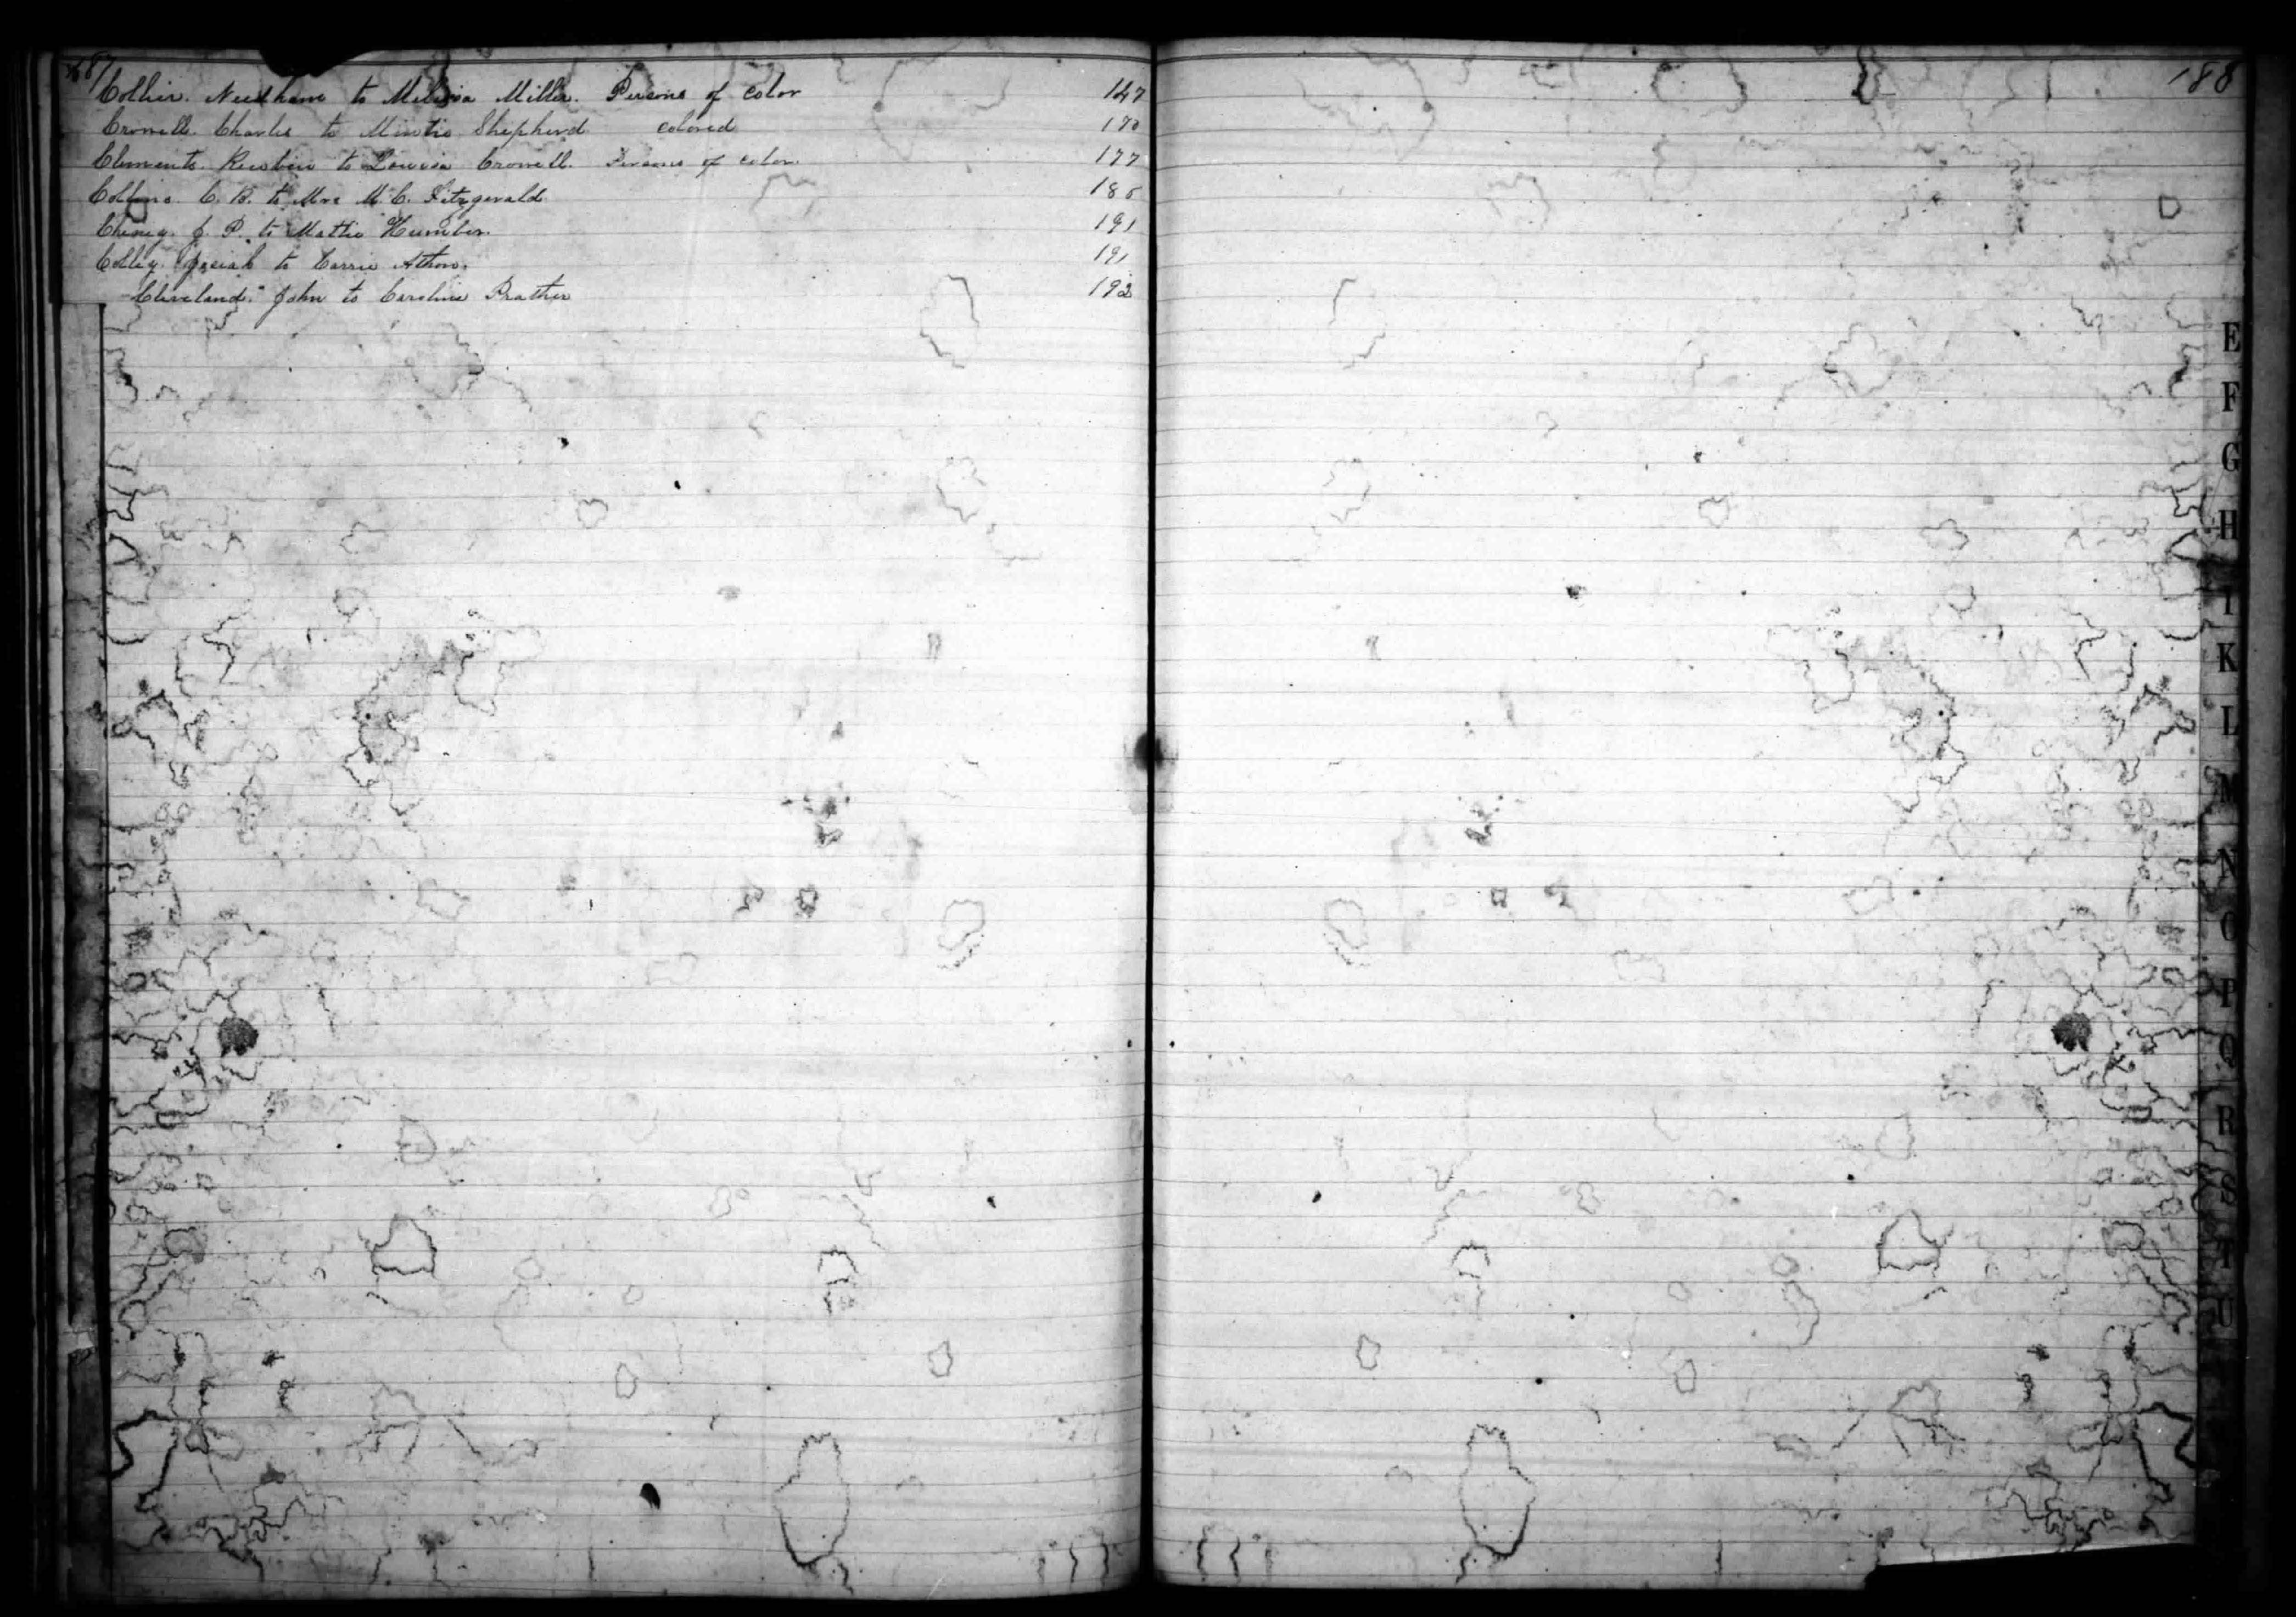 187
Collier. Needham to Melissa Miller. Persons of color 147
Crowell. Charles to Mintie Shepherd colored 170
Clements. Reuben to Louisa Crowell. Persons of color. 177
Collins. C. B. to Mrs M. C. Fitzgerald 185
Cheney. J. P. to Mattie Humber. 191
Colley. Josiah to Carrie 191
Cleveland. John to Caroline Prather 192
188
E
F
G
H
I
K
L
M
N
O
P
Q
R
S
T
U